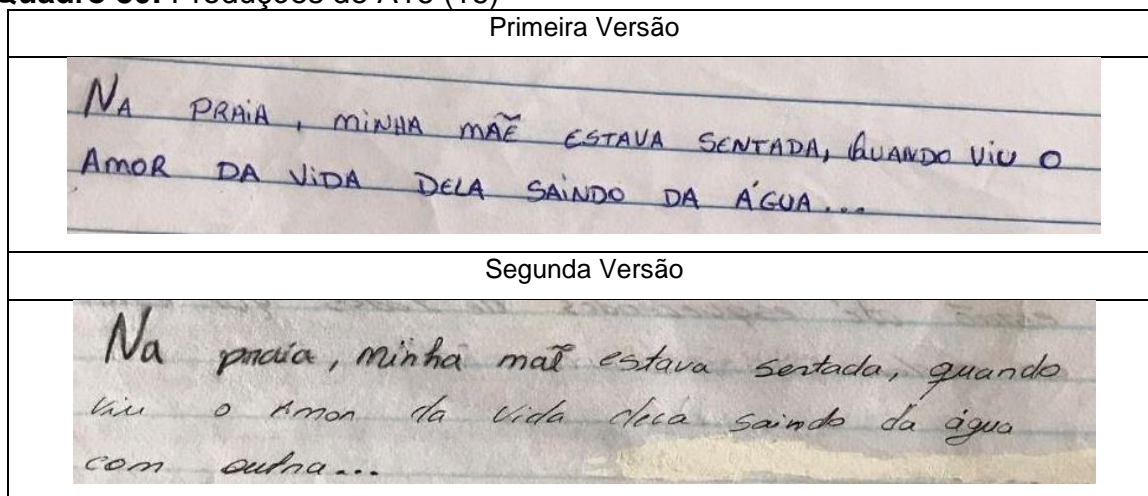 Quadro 30. Produções de A18 (T8)
Primeira Versão
NA PRAIA, MINHA MÃE ESTAVA SENTADA, QUANDO VIU O
AMOR DA VIDA DELA SAINDO DA ÁGUA...
Segunda Versão
Na praia, minha mãe estava sentada, quando
viu o Amor da vida dela saindo da água
com outra...